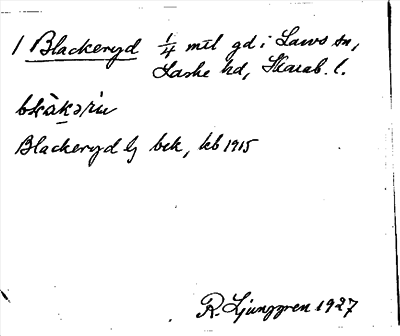 1 Blackeryd 1/4 mtl gd i Lavas sn,
Laske hd, Skarab. l.
Blackeryd bek, kb 1915
R. Ljunggren 1927